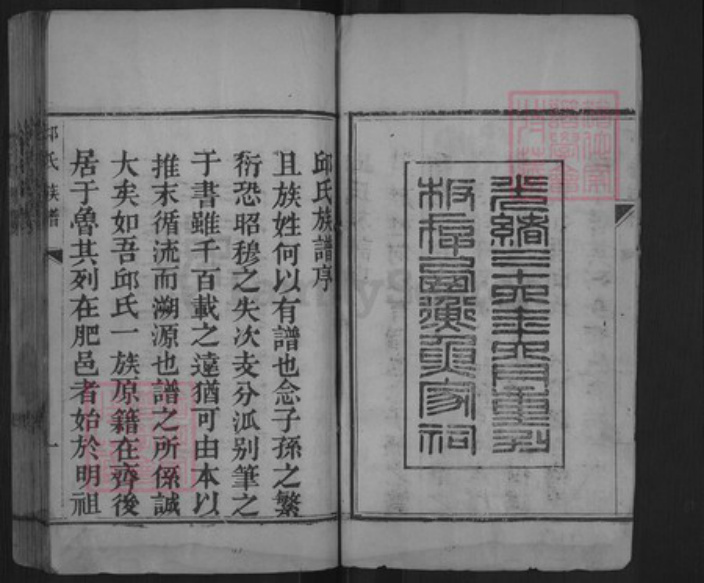 光緒三十四年六月重刊
板存西陵貢家祠
邱氏族譜序
且族姓何以有譜也念子孫之繁
衍恐昭穆之失次支分派别筆之
于書雖千百載之遠猶可由本以
推末循流而溯源也譜之所係誠
大矣如吾邱氏一族原籍在齊後
居于魯其列在肥邑者始於明祖
邱氏族譜
一